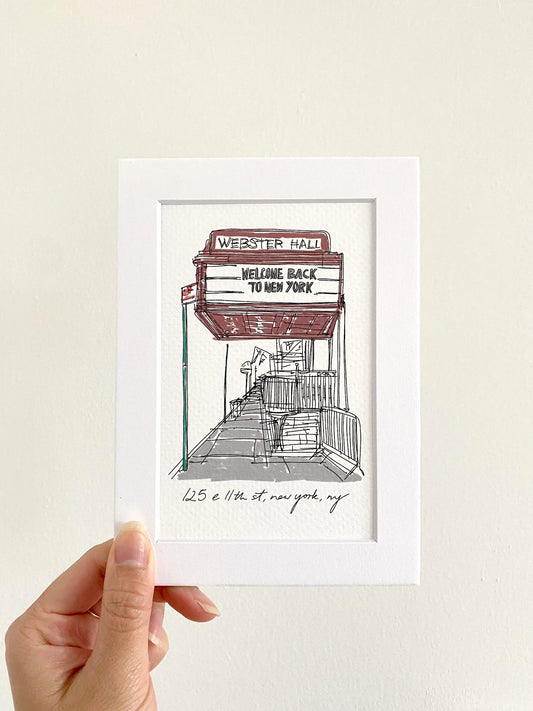 WEBSTER HALL
WELCOME BACK
TO NEW YORK
125 e 11th st, new york, ny